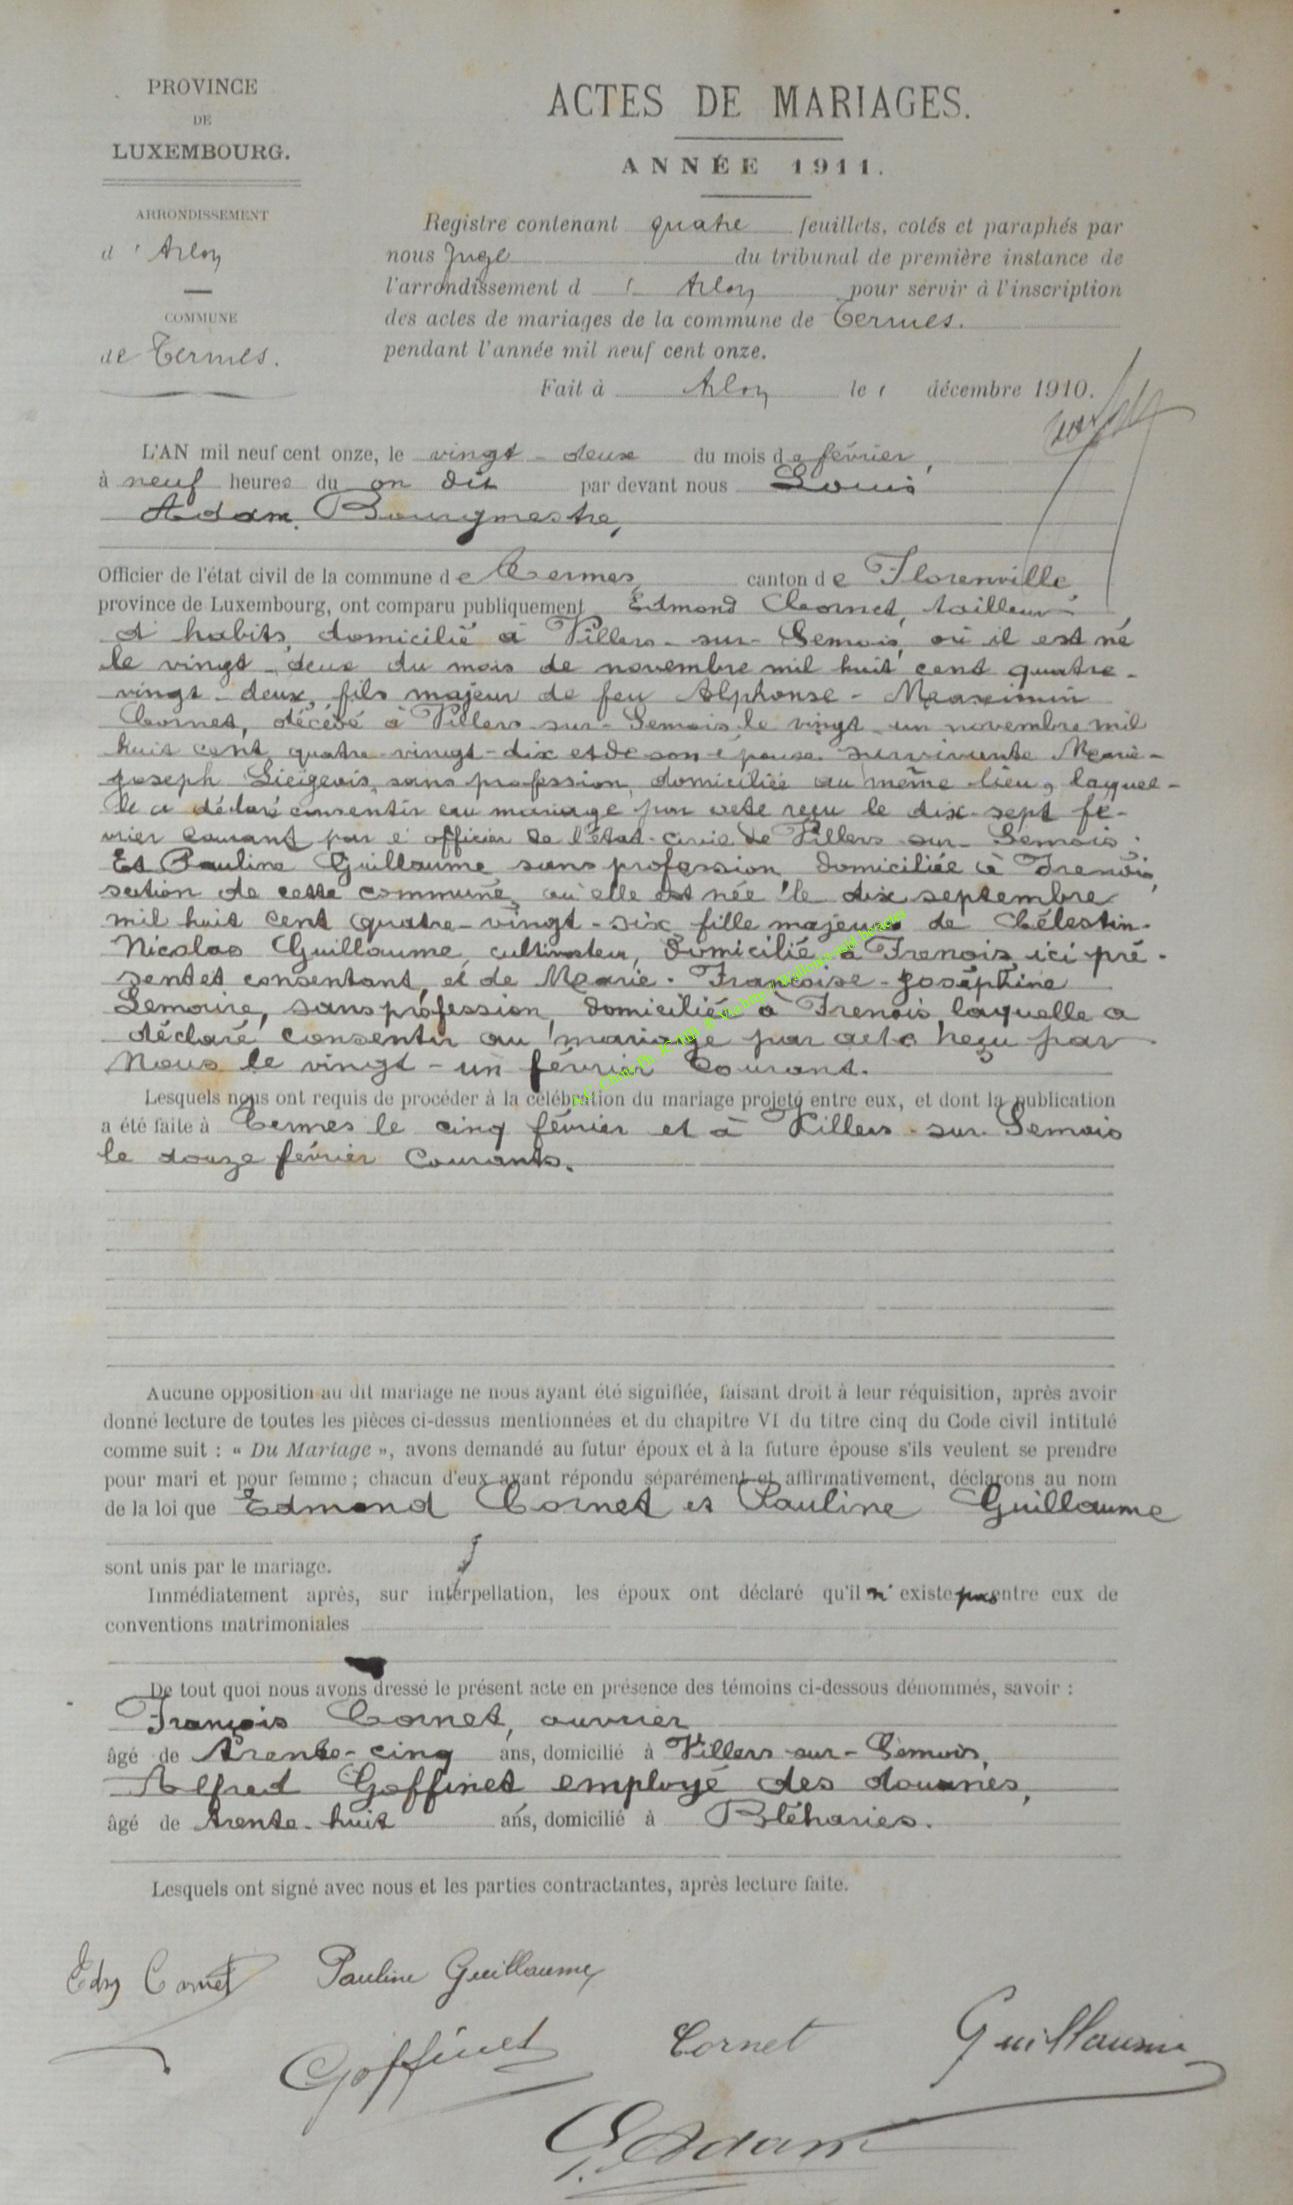 PROVINCE
DE
LUXEMBOURG.
ARRONDISSEMENT
d'Arlon
COMMUNE
de Termes.
ACTES DE MARIAGES.
ANNÉE 1911.
Registre contenant quatre feuillets, cotés et paraphés par
nous Juge du tribunal de première instance de
l'arrondissement d' Arlon pour servir à l'inscription
des actes de mariages de la commune de Termes.
pendant l'année mil neuf cent onze.
Fait à Arlon le 1 décembre 1910.
L'AN mil neuf cent onze, le vingt-deux du mois de février,
à neuf heures du on dit par devant nous Louis
Adam, Bourgmestre,
Officier de l'état civil de la commune de Termes, canton de Florenville
province de Luxembourg, ont comparu publiquement Edmond Cornet, tailleur
d'habits, domicilié à Villers-sur-Semois, où il est né
le vingt-deux du mois de novembre mil huit cent quatre-
vingt-deux, fils majeur de feu Alphonse-Maximin
Cornet, décédé à Villers-sur-Semois le vingt-un novembre mil
huit cent quatre-vingt-dix et de son épouse survivante Marie-
Joseph Liégeois, sans profession, domiciliée au même lieu, laquel-
le a déclaré consentir au mariage par acte reçu le dix-sept fé-
vrier courant par l'officier de l'état-civil de Villers-sur-Semois;
Et Pauline Guillaume sans profession, domiciliée à Frenois,
section de cette commune, où elle est née le dix septembre
mil huit cent quatre-vingt-six, fille majeure de Célestin-
Nicolas Guillaume, cultivateur, domicilié à Frenois, ici pré-
sent et consentant, et de Marie-Françoise-Joséphine
Lemoine, sans profession, domiciliée à Frenois, laquelle a
déclaré consentir au mariage par acte reçu par
Nous le vingt-un février courant.
Lesquels nous ont requis de procéder à la célébration du mariage projeté entre eux, et dont la publication
a été faite à Termes le cinq février et à Villers-sur-Semois
le douze février courants.
Aucune opposition au dit mariage ne nous ayant été signifiée, faisant droit à leur réquisition, après avoir
donné lecture de toutes les pièces ci-dessus mentionnées et du chapitre VI du titre cinq du Code civil intitulé
comme suit : « Du Mariage », avons demandé au futur époux et à la future épouse s'ils veulent se prendre
pour mari et pour femme ; chacun d'eux ayant répondu séparément et affirmativement, déclarons au nom
de la loi que Edmond Cornet et Pauline Guillaume
sont unis par le mariage.
Immédiatement après, sur interpellation, les époux ont déclaré qu'il n'existe pas entre eux de
conventions matrimoniales
De tout quoi nous avons dressé le présent acte en présence des témoins ci-dessous dénommés, savoir :
François Cornet, ouvrier
âgé de trente-cinq ans, domicilié à Villers-sur-Semois,
Alfred Goffinet employé des douanes,
âgé de trente-huit ans, domicilié à Bléharies.
Lesquels ont signé avec nous et les parties contractantes, après lecture faite.
Edm Cornet Pauline Guillaume
Goffinet Cornet Guillaume
L. Adam